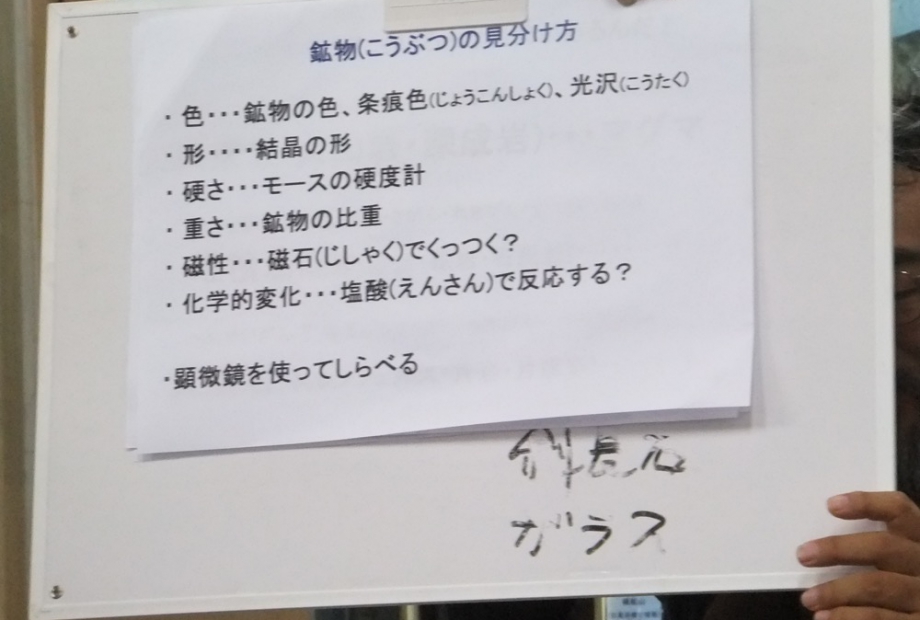 鉱物(こうぶつ)の見分け方
・色・・・鉱物の色、条痕色(じょうこんしょく)、光沢(こうたく)
・形・・・・結晶の形
・硬さ・・・モースの硬度計
・重さ・・・鉱物の比重
・磁性・・・磁石(じしゃく)でくっつく？
・化学的変化・・・塩酸(えんさん)で反応する？
・顕微鏡を使ってしらべる
斜長石
ガラス